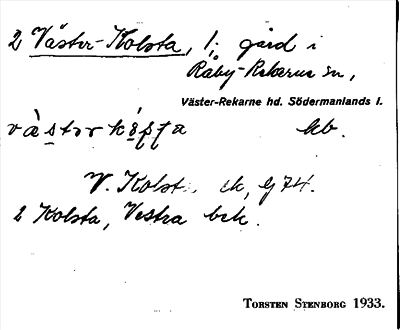 2 Väster-Kolsta, 1; gård i
Råby-Rekarne sn,
Väster-Rekarne hd. Södermanlands l.
kb.
V. Kolst. ek, Gj 74.
2 Kolsta, Vestra bek.
TORSTEN STENBORG 1933.